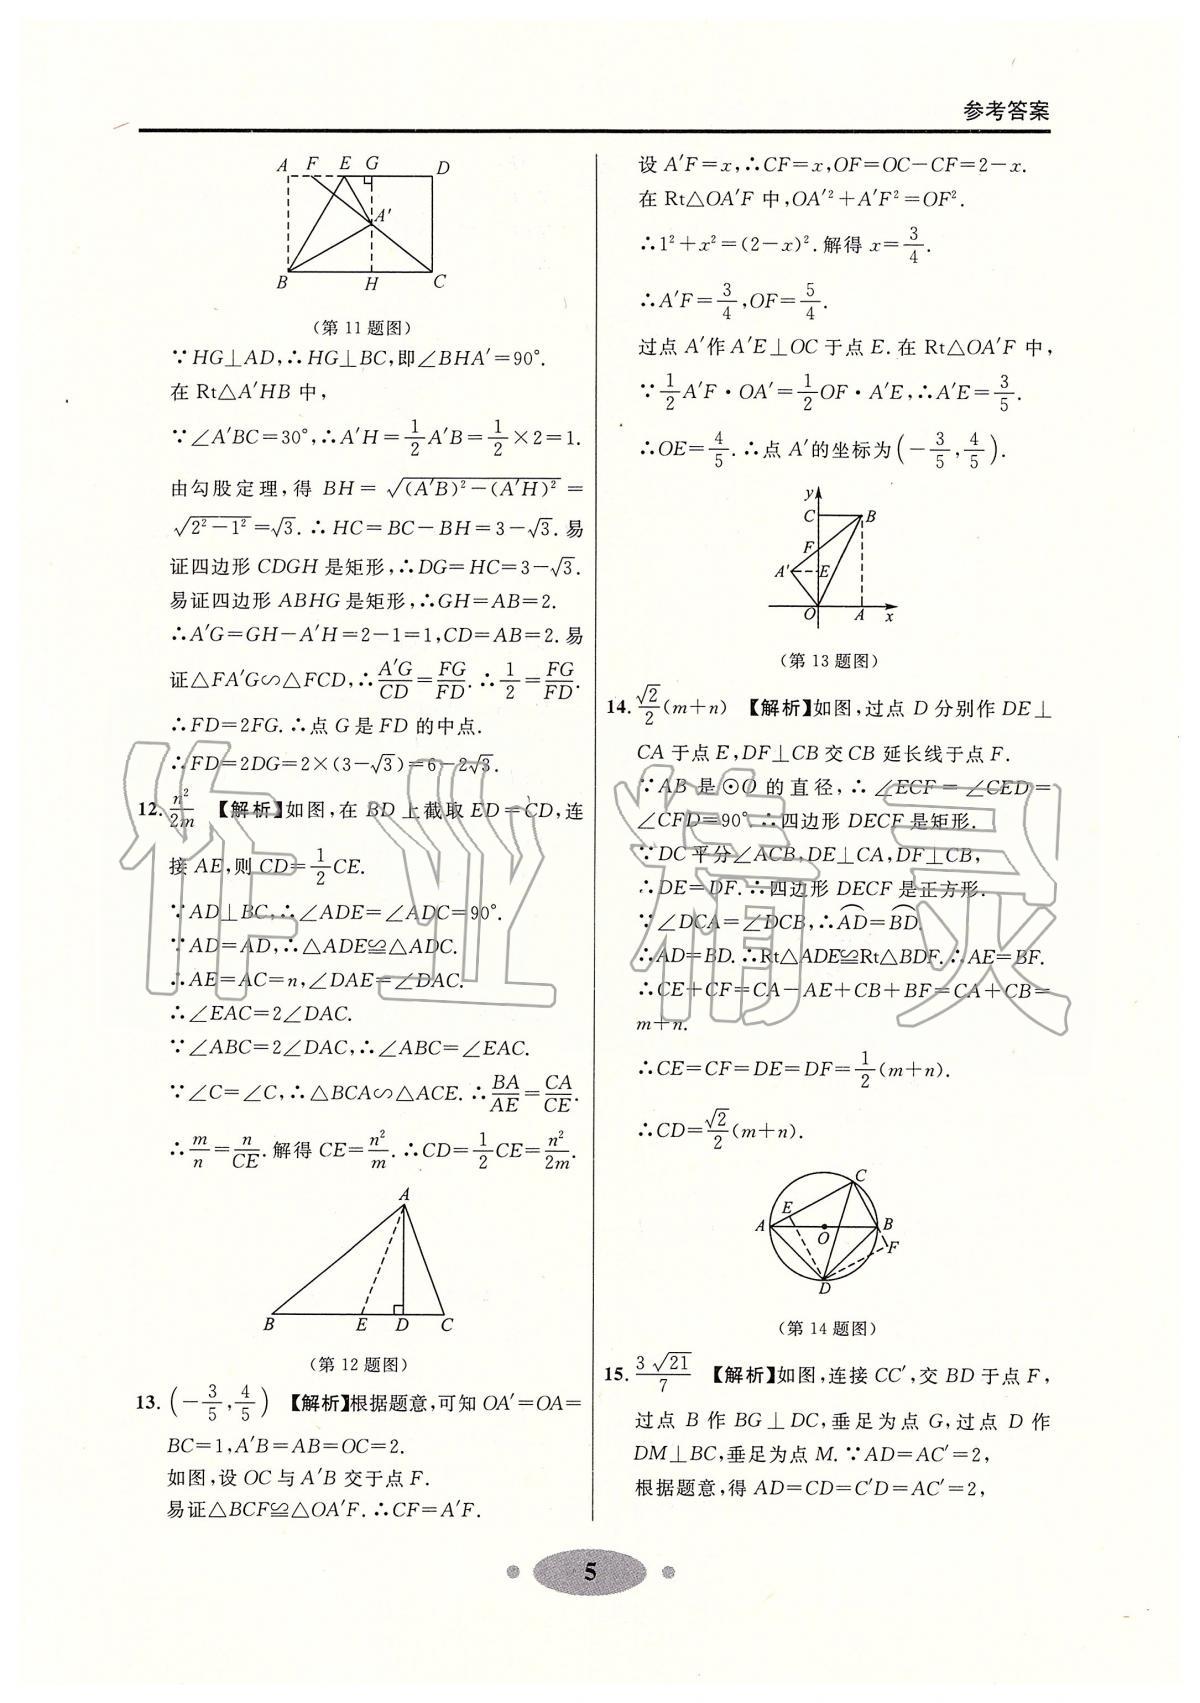 参考答案
A F E G D
A′
B H C
(第11题图)
∵HG⊥AD,∴HG⊥BC,即∠BHA′=90°.
在Rt△A′HB中,
∵∠A′BC=30°,∴A′H=1/2A′B=1/2×2=1.
由勾股定理,得BH=√((A′B)²-(A′H)²)=
√(2²-1²)=√3.∴HC=BC-BH=3-√3.易
证四边形CDGH是矩形,∴DG=HC=3-√3.
易证四边形ABHG是矩形,∴GH=AB=2.
∴A′G=GH-A′H=2-1=1,CD=AB=2.易
证△FA′G∽△FCD,∴A′G/CD=FG/FD.∴1/2=FG/FD.
∴FD=2FG.∴点G是FD的中点.
∴FD=2DG=2×(3-√3)=6-2√3.
12. n²/2m 【解析】如图,在BD上截取ED=CD,连
接AE,则CD=1/2CE.
∵AD⊥BC,∴∠ADE=∠ADC=90°.
∵AD=AD,∴△ADE≌△ADC.
∴AE=AC=n,∠DAE=∠DAC.
∴∠EAC=2∠DAC.
∵∠ABC=2∠DAC,∴∠ABC=∠EAC.
∵∠C=∠C,∴△BCA∽△ACE.∴BA/AE=CA/CE.
∴m/n=n/CE.解得CE=n²/m.∴CD=1/2CE=n²/2m.
A
B E D C
(第12题图)
13. (-3/5,4/5) 【解析】根据题意,可知OA′=OA=
BC=1,A′B=AB=OC=2.
如图,设OC与A′B交于点F.
易证△BCF≌△OA′F.∴CF=A′F.
设A′F=x,∴CF=x,OF=OC-CF=2-x.
在Rt△OA′F中,OA′²+A′F²=OF².
∴1²+x²=(2-x)².解得x=3/4.
∴A′F=3/4,OF=5/4.
过点A′作A′E⊥OC于点E.在Rt△OA′F中,
∵1/2A′F·OA′=1/2OF·A′E,∴A′E=3/5.
∴OE=4/5.∴点A′的坐标为(-3/5,4/5).
y
C B
F
A′ E
O A x
(第13题图)
14. √2/2(m+n) 【解析】如图,过点D分别作DE⊥
CA于点E,DF⊥CB交CB延长线于点F.
∵AB是⊙O的直径,∴∠ECF=∠CED=
∠CFD=90°.∴四边形DECF是矩形.
∵DC平分∠ACB,DE⊥CA,DF⊥CB,
∴DE=DF.∴四边形DECF是正方形.
∵∠DCA=∠DCB,∴A͡D=B͡D.
∴AD=BD.∴Rt△ADE≌Rt△BDF.∴AE=BF.
∴CE+CF=CA-AE+CB+BF=CA+CB=
m+n.
∴CE=CF=DE=DF=1/2(m+n).
∴CD=√2/2(m+n).
C
E
A O B
F
D
(第14题图)
15. 3√21/7 【解析】如图,连接CC′,交BD于点F,
过点B作BG⊥DC,垂足为点G,过点D作
DM⊥BC,垂足为点M.∵AD=AC′=2,
根据题意,得AD=CD=C′D=AC′=2,
5
作业精灵